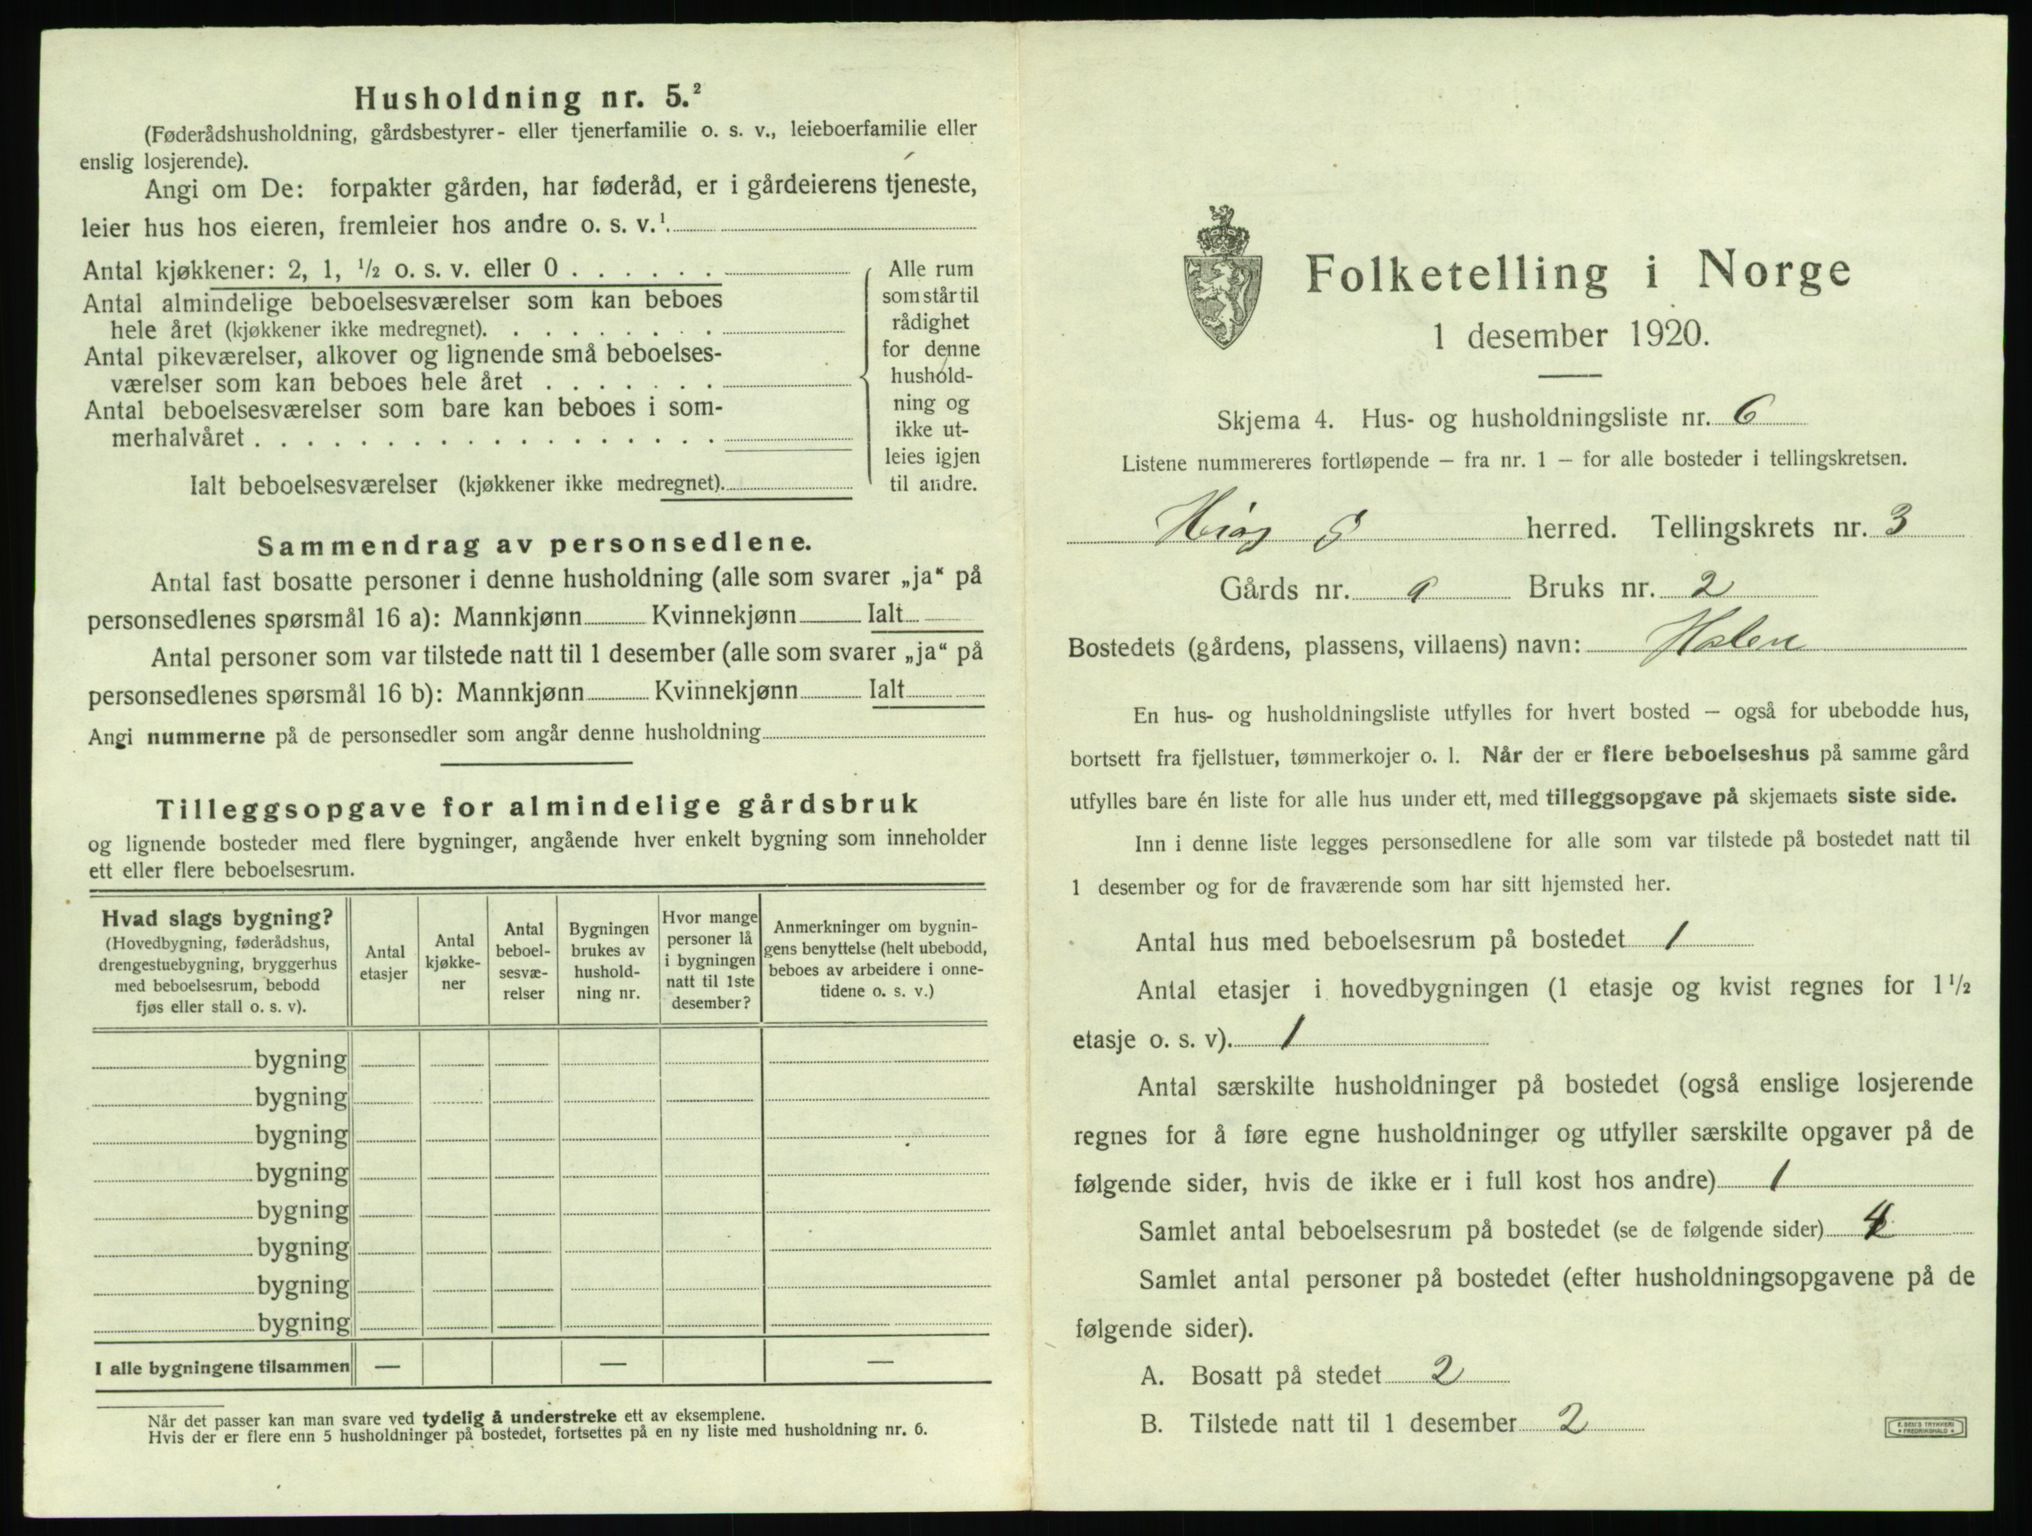 Husholdning nr. 5.²
(Føderådshusholdning, gårdsbestyrer- eller tjenerfamilie o. s. v., leieboerfamilie eller
enslig losjerende).
Angi om De: forpakter gården, har føderåd, er i gårdeierens tjeneste,
leier hus hos eieren, fremleier hos andre o. s. v.¹
Antal kjøkkener: 2, 1, ½ o. s. v. eller 0
Antal almindelige beboelsesværelser som kan beboes
hele året (kjøkkener ikke medregnet).
Antal pikeværelser, alkover og lignende små beboelses-
værelser som kan beboes hele året
Antal beboelsesværelser som bare kan beboes i som-
merhalvåret
Ialt beboelsesværelser (kjøkkener ikke medregnet).
Alle rum
som står til
rådighet
for denne
hushold-
ning og
ikke ut-
leies igjen
til andre.
Sammendrag av personsedlene.
Antal fast bosatte personer i denne husholdning (alle som svarer „ja“ på
personsedlenes spørsmål 16 a): Mannkjønn Kvinnekjønn Ialt
Antal personer som var tilstede natt til 1 desember (alle som svarer „ja“ på
personsedlenes spørsmål 16 b): Mannkjønn Kvinnekjønn Ialt
Angi nummerne på de personsedler som angår denne husholdning
Tilleggsopgave for almindelige gårdsbruk
og lignende bosteder med flere bygninger, angående hver enkelt bygning som inneholder
ett eller flere beboelsesrum.
Hvad slags bygning?
(Hovedbygning, føderådshus,
drengestuebygning, bryggerhus
med beboelsesrum, bebodd
fjøs eller stall o. s. v).
Antal
etasjer
Antal
kjøkke-
ner
Antal
beboel-
sesvæ-
relser
Bygningen
brukes av
hushold-
ning nr.
Hvor mange
personer lå
i bygningen
natt til 1ste
desember?
Anmerkninger om bygnin-
gens benyttelse (helt ubebodd,
beboes av arbeidere i onne-
tidene o. s. v.)
bygning
bygning
bygning
bygning
bygning
bygning
bygning
bygning
I alle bygningene tilsammen — — —
Når det passer kan man svare ved tydelig å understreke ett av eksemplene.
Hvis der er flere enn 5 husholdninger på bostedet, fortsettes på en ny liste med husholdning nr. 6.
Folketelling i Norge
1 desember 1920.
Skjema 4. Hus- og husholdningsliste nr. 6
Listene nummereres fortløpende – fra nr. 1 – for alle bosteder i tellingskretsen.
herred. Tellingskrets nr. 3
Gårds nr. 9 Bruks nr. 2
Bostedets (gårdens, plassens, villaens) navn: Holen
En hus- og husholdningsliste utfylles for hvert bosted – også for ubebodde hus,
bortsett fra fjellstuer, tømmerkojer o. l. Når der er flere beboelseshus på samme gård
utfylles bare én liste for alle hus under ett, med tilleggsopgave på skjemaets siste side.
Inn i denne liste legges personsedlene for alle som var tilstede på bostedet natt til
1 desember og for de fraværende som har sitt hjemsted her.
Antal hus med beboelsesrum på bostedet 1
Antal etasjer i hovedbygningen (1 etasje og kvist regnes for 1½
etasje o. s. v). 1
Antal særskilte husholdninger på bostedet (også enslige losjerende
regnes for å føre egne husholdninger og utfyller særskilte opgaver på de
følgende sider, hvis de ikke er i full kost hos andre) 1
Samlet antal beboelsesrum på bostedet (se de følgende sider) 4
Samlet antal personer på bostedet (efter husholdningsopgavene på de
følgende sider).
A. Bosatt på stedet 2
B. Tilstede natt til 1 desember 2